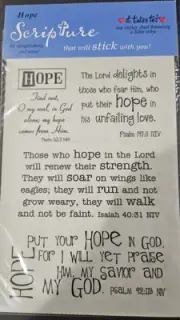 Hope
Scripture
for scrapbooking
that will stick with you!
HOPE
Find rest,
O my soul, in God
alone; my hope
comes from Him.
Psalm 62:5 NIV
The Lord delights in
those who fear Him, who
put their hope in
his unfailing love.
Psalm 147:11 NIV
Those who hope in the Lord
will renew their strength.
They will soar on wings like
eagles; they will run and not
grow weary, they will walk
and not be faint. Isaiah 40:31 NIV
HOPE
PUT YOUR HOPE IN GOD,
FOR I WILL YET PRAISE
HIM, MY SAVIOR AND
MY GOD.